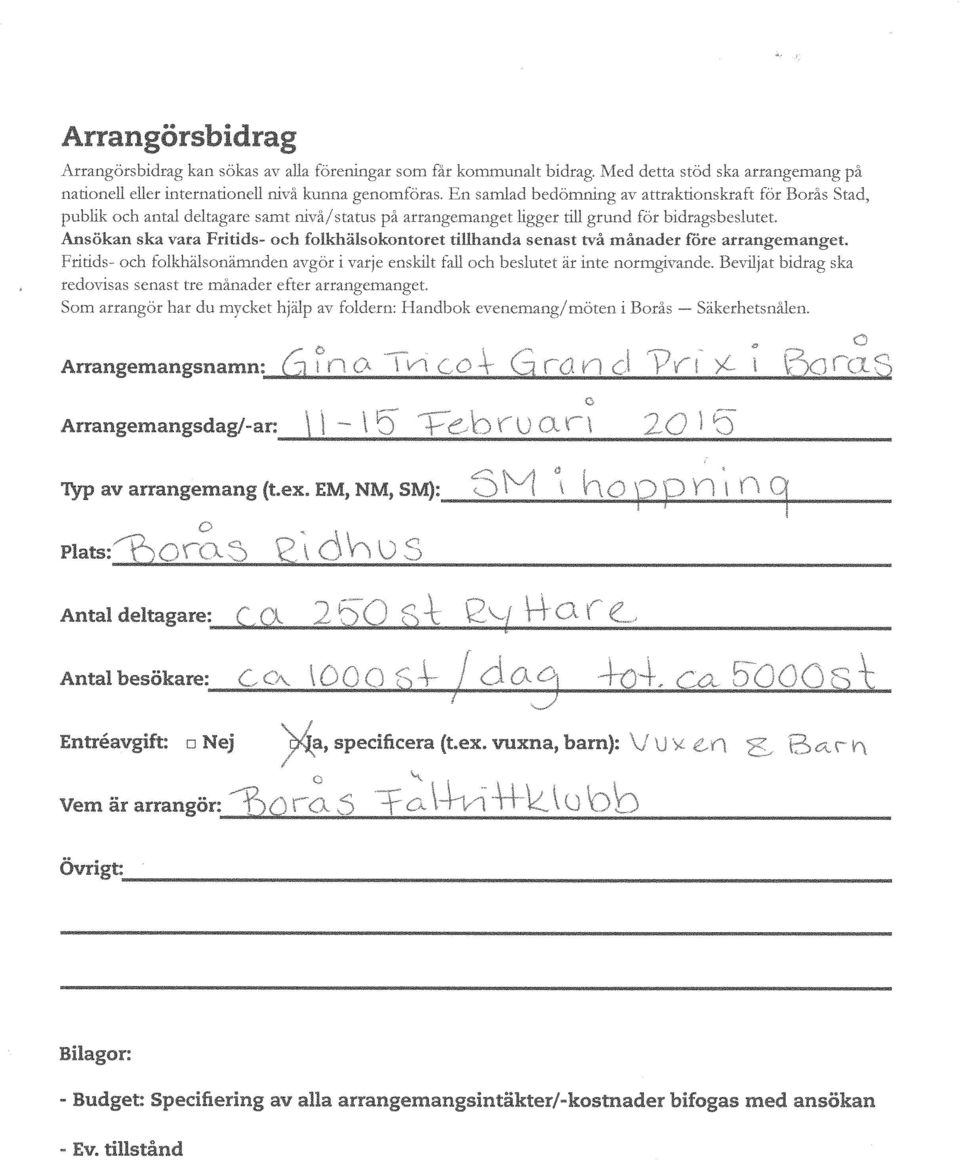 Arrangörsbidrag
Arrangörsbidrag kan sökas av alla föreningar som får kommunalt bidrag. Med detta stöd ska arrangemang på
nationell eller internationell nivå kunna genomföras. En samlad bedömning av attraktionskraft för Borås Stad,
publik och antal deltagare samt nivå/status på arrangemanget ligger till grund för bidragsbeslutet.
Ansökan ska vara Fritids- och folkhälsokontoret tillhanda senast två månader före arrangemanget.
Fritids- och folkhälsonämnden avgör i varje enskilt fall och beslutet är inte normgivande. Beviljat bidrag ska
redovisas senast tre månader efter arrangemanget.
Som arrangör har du mycket hjälp av foldern: Handbok evenemang/möten i Borås — Säkerhetsnålen.
Arrangemangsnamn: Gina Tricot Grand Prix i Borås
Arrangemangsdag/-ar: 11-15 Februari 2015
Typ av arrangemang (t.ex. EM, NM, SM): SM i hoppning
Plats: Borås Ridhus
Antal deltagare: ca 250 st Ryttare
Antal besökare: ca 1000 st / dag tot. ca 5000 st
Entréavgift: □ Nej Ja, specificera (t.ex. vuxna, barn): Vuxen & Barn
Vem är arrangör: Borås Fältrittklubb
Övrigt:
Bilagor:
- Budget: Specifiering av alla arrangemangsintäkter/-kostnader bifogas med ansökan
- Ev. tillstånd